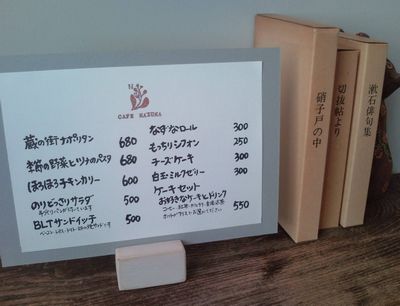 CAFE NAZUNA
蔵の街ナポリタン 680
季節の野菜とツナのパスタ 680
ほろほろチキンカリー 600
のりどっさりサラダ 500
BLTサンドイッチ 500
なずなロール 300
もっちりシフォン 250
チーズケーキ 300
白玉ミルクゼリー 300
ケーキセット
お好きなケーキとドリンク 550
硝子戸の中
切抜帖より
漱石俳句集